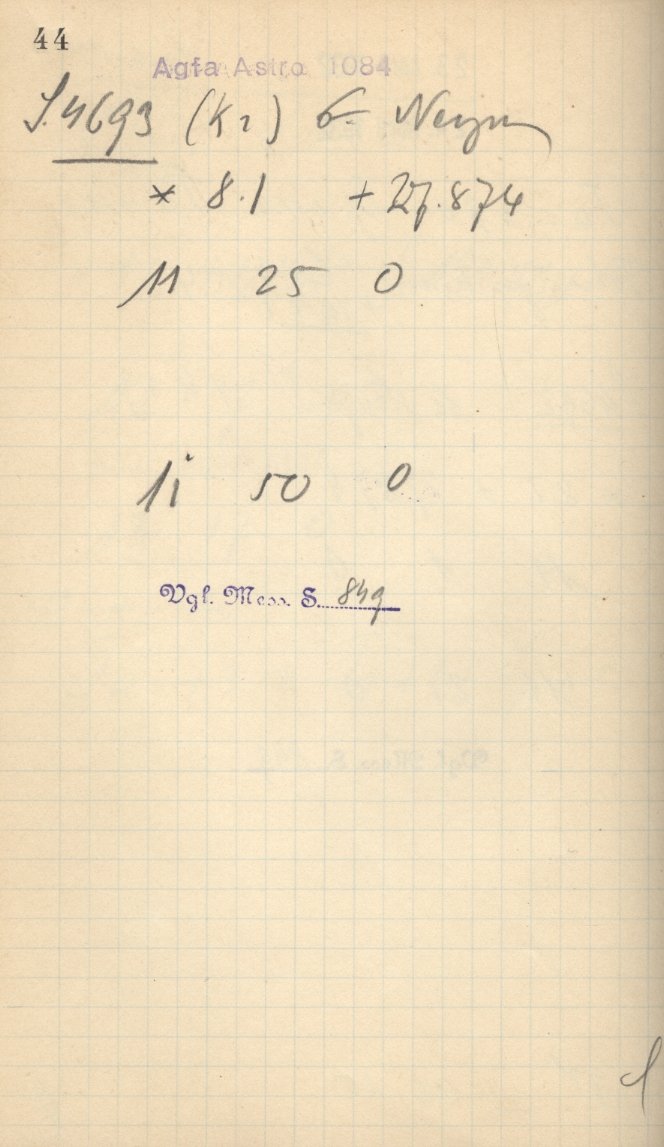 44
Agfa Astro 1084
S.4693 (Kr) G.
* 8.1 + 27.874
11 25 0
11 50 0
Vgl. Mess. S. 849